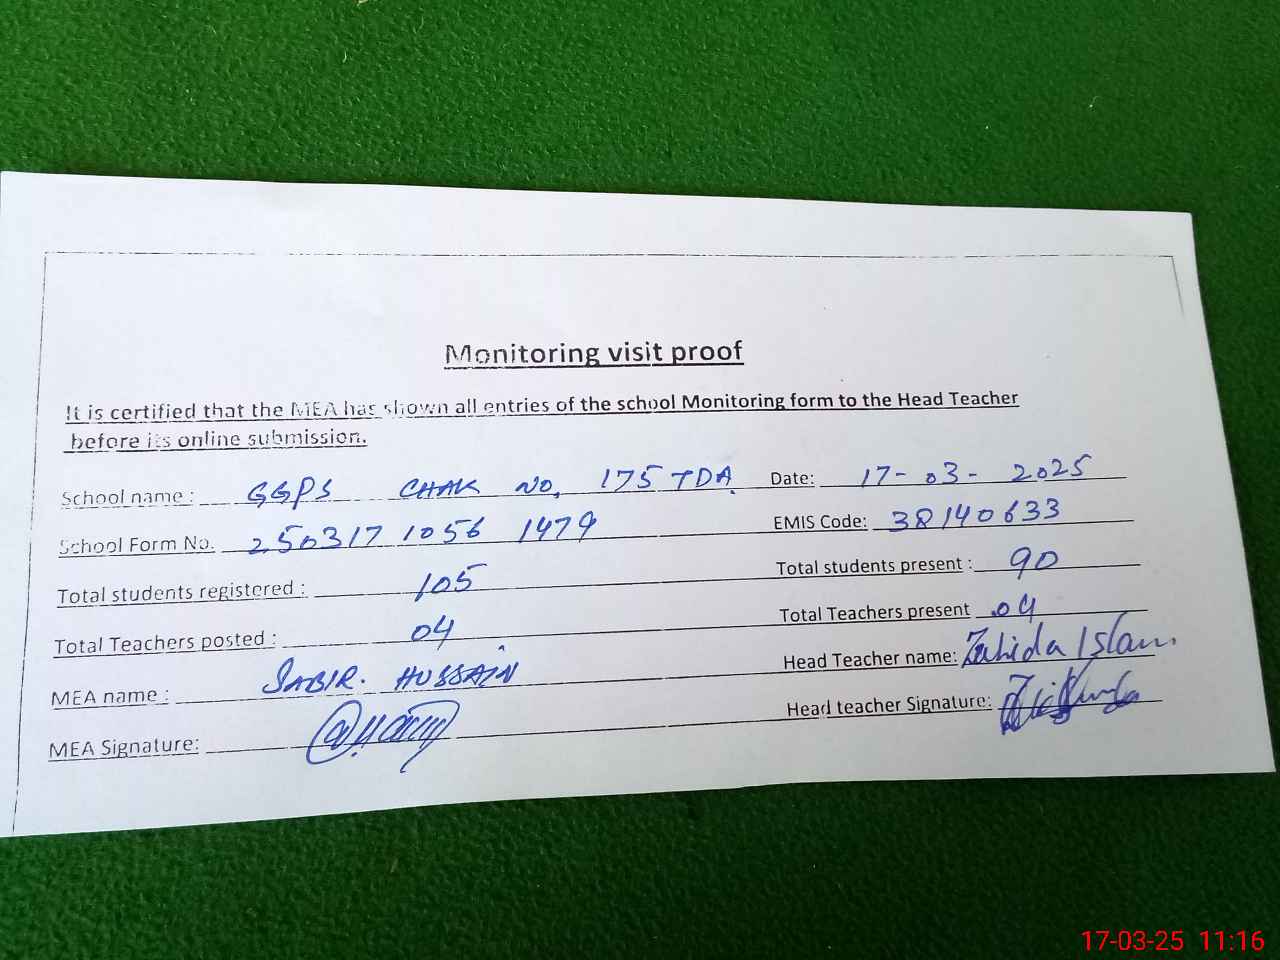 Monitoring visit proof
It is certified that the MEA has shown all entries of the school Monitoring form to the Head Teacher
before its online submission.
School name : GGPS CHAK NO. 175 TDA Date: 17-03-2025
School Form No. 250317 1056 1479 EMIS Code: 38140633
Total students registered : 105 Total students present : 90
Total Teachers posted : 04 Total Teachers present .04
MEA name : SABIR. HUSSAIN Head Teacher name: Zahida Islam.
MEA Signature: Head teacher Signature:
17-03-25 11:16